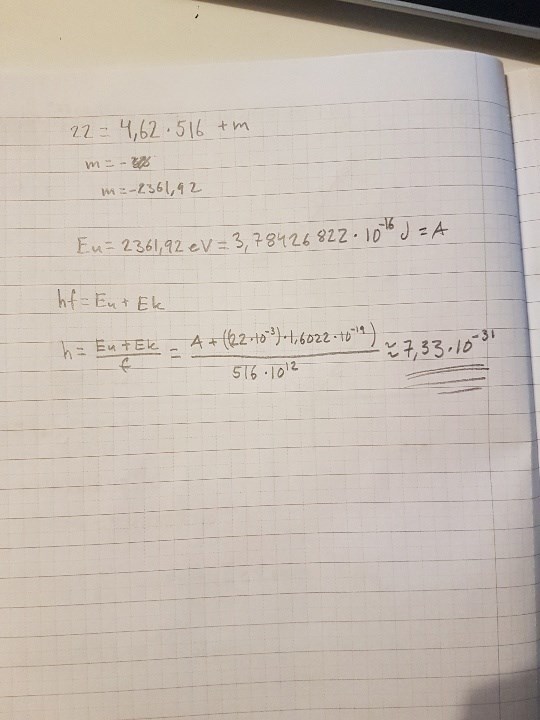 22 = 4,62 · 516 + m
m = -
m = -2361,92
Eu = 2361,92 eV = 3,78426822 · 10^-16 J = A
hf = Eu + Ek
h = (Eu + Ek)/f = (A + ((22·10^-3)·1,6022·10^-19))/(516·10^12) ≈ 7,33·10^-31